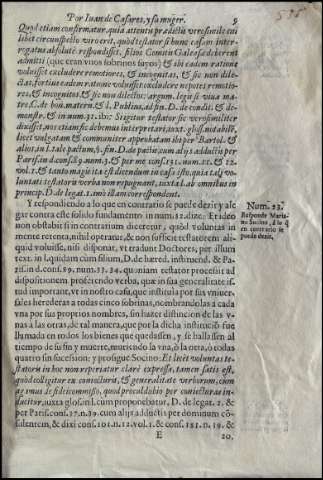 Por Iuan de Casares, y su muger. 9
Quod etiam confirmatur, quia attenta prædicta verosimile cui
libet circunspecto viro erit, quod testator si hunc casum inter-
rogatus absolutè respondisset, filios Comitis Galeasse deberent
admitti (que eran vnos sobrinos suyos) & ibi eadem ratione
voluisset excludere remotiores, & incognitas, & sic non dile-
ctas, fortius eadem ratione voluisset excludere nepotes remotio-
res, & incognitos, & sic non dilectos: argum. legis si viua ma-
tre, C. de bon. matern. & l. Publius, ad fin. D. de condit. & de-
monstr. & in num. 31. ibi: Igitur testator sic verosimiliter
dixisset, nos etiam sic debemus interpretari, iuxt. gloss. notabile,
licet vulgatam & communiter approbatam ibi per Bartol. &
alios, in l. tale pactum, §. fin. D. de pactis, cum alijs adductis per
Paris. in d. cons. 89. num. 3. & per me cons. 131. num. 22. & 12.
vol. 1. & tantò magis ita est dicendum in casu isto, quia tali vo-
luntati testatoris verba non repugnant, iuxta l. ab omnibus in
princip. D. de legat. 1. imò illam correspondent.
Y respondiendo a lo que en contrario se puede dezir y ale
gar contra este solido fundamento in num. 32. dize: Et ideo
non obstabit si in contrarium diceretur, quòd voluntas in
mente retenta, nihil operatur, & non sufficit testatorem ali-
quid voluisse, nisi disponat, vt tradunt Doctores, per illum
text. in l. quidam cum filium, D. de hæred. instituend. & Pa-
ris. in d. cons. 89. num. 33. 34. quoniam testator processit ad
dispositionem proferendo verba, quæ in sua generalitate is-
tud important, vt in nostro casu, que instituia por sus vniuer-
sales herederas a todas cinco sobrinas, nombrandolas a cada
vna por sus proprios nombres, sin hazer distincion de las v-
nas a las otras, de tal manera, que por la dicha instituciõ fue
llamada en todos los bienes que quedassen, y se hallassen al
tiempo de su fin y muerte, muriendo la vna, ò la otra, ò todas
quatro sin sucession; y prosigue Socino: Et licèt voluntas te-
statoris in hoc non reperiatur clarè expressa, tamen satis est,
quòd colligitur ex coniecturis, & generalitate verborum, cum
agimus de fideicommisso, quod procul dubio per coniecturas in-
ducitur, iuxta glos. in l. cum proponebatur, D. de legat. 2. &
per Paris. cons. 27. n. 39. cum alijs adductis per dominum cõ-
sulentem, & dixi cons. 101. n. 12. vol. 1. & cons. 131. n. 19. &
E 20.
Num. 23.
Responde Maria-
no Socino, à lo q̃
en contrario se
puede dezir.